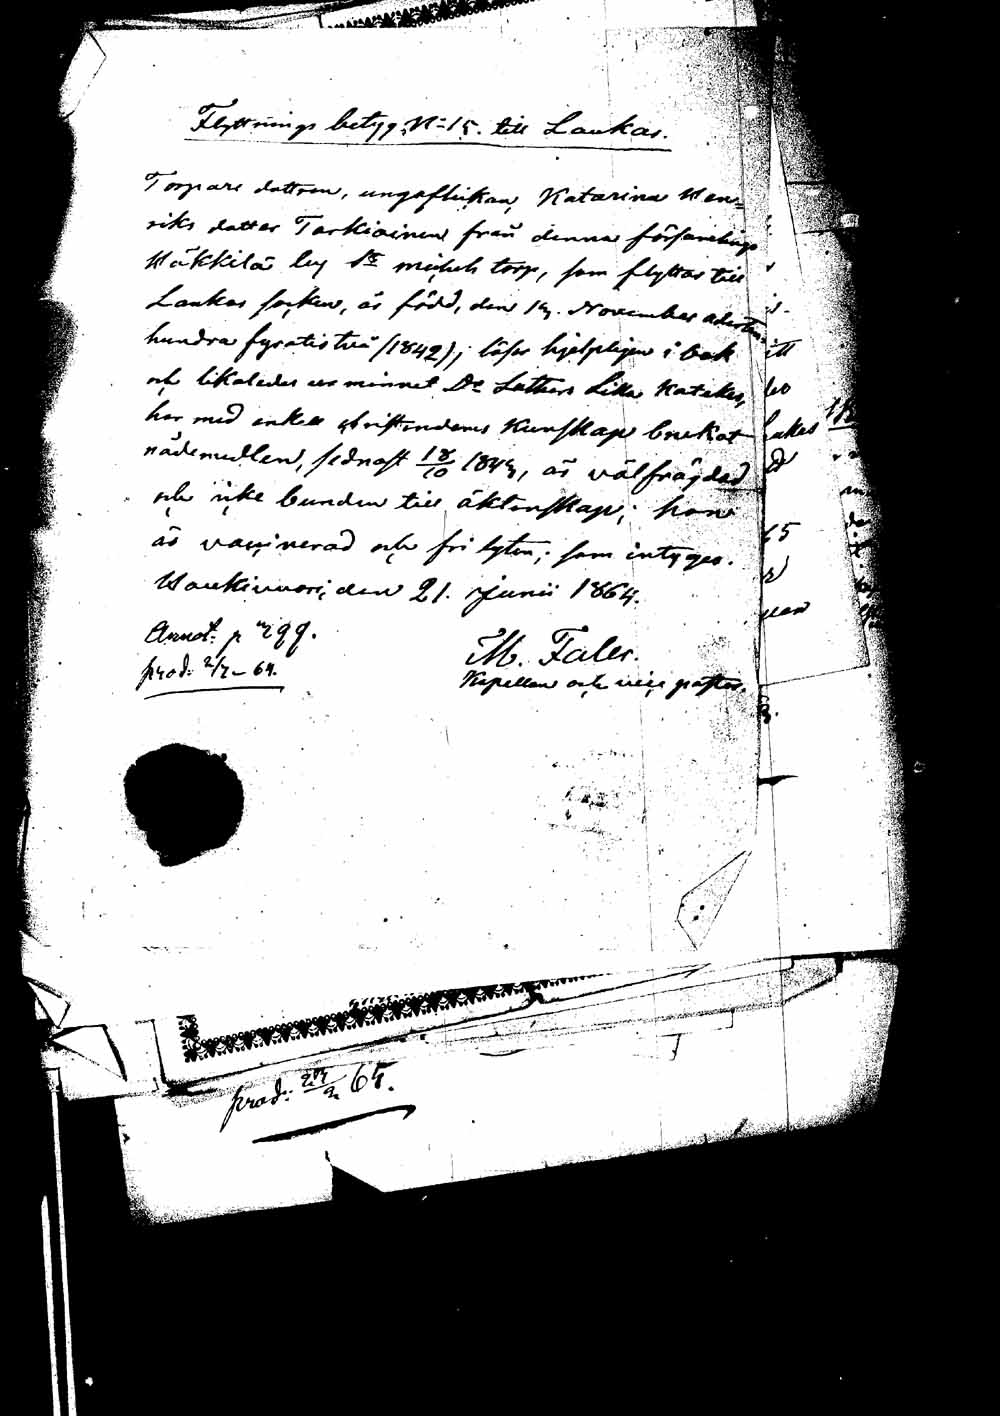 Flyttnings betyg, N=15. till Laukas.
Torpare dottren, ungaflickan, Katarina Hen-
riks dotter Tarkiainen från denna församlings
Häkkilä by St. michels torp, som flyttar till
Laukas socken, är född, den 14. November aderton-
hundra fyratio två (1842); läser hjelpligen i bok
och likaledes ur minnet Dr Luthers Lilla Katekes,
har med enkel christendoms kunskap brukat
nådemedlen, sednast 18/10 1863, är välfräjdad
och icke bunden till äktenskap; hon
är vaccinerad och fri lyten; som intygar.
Hankivuori, den 21. junii 1864.
Annot: p 299.
prod: 2/7 64.
M. Faler.
Kapellan och vice pastor.
prod: 65.